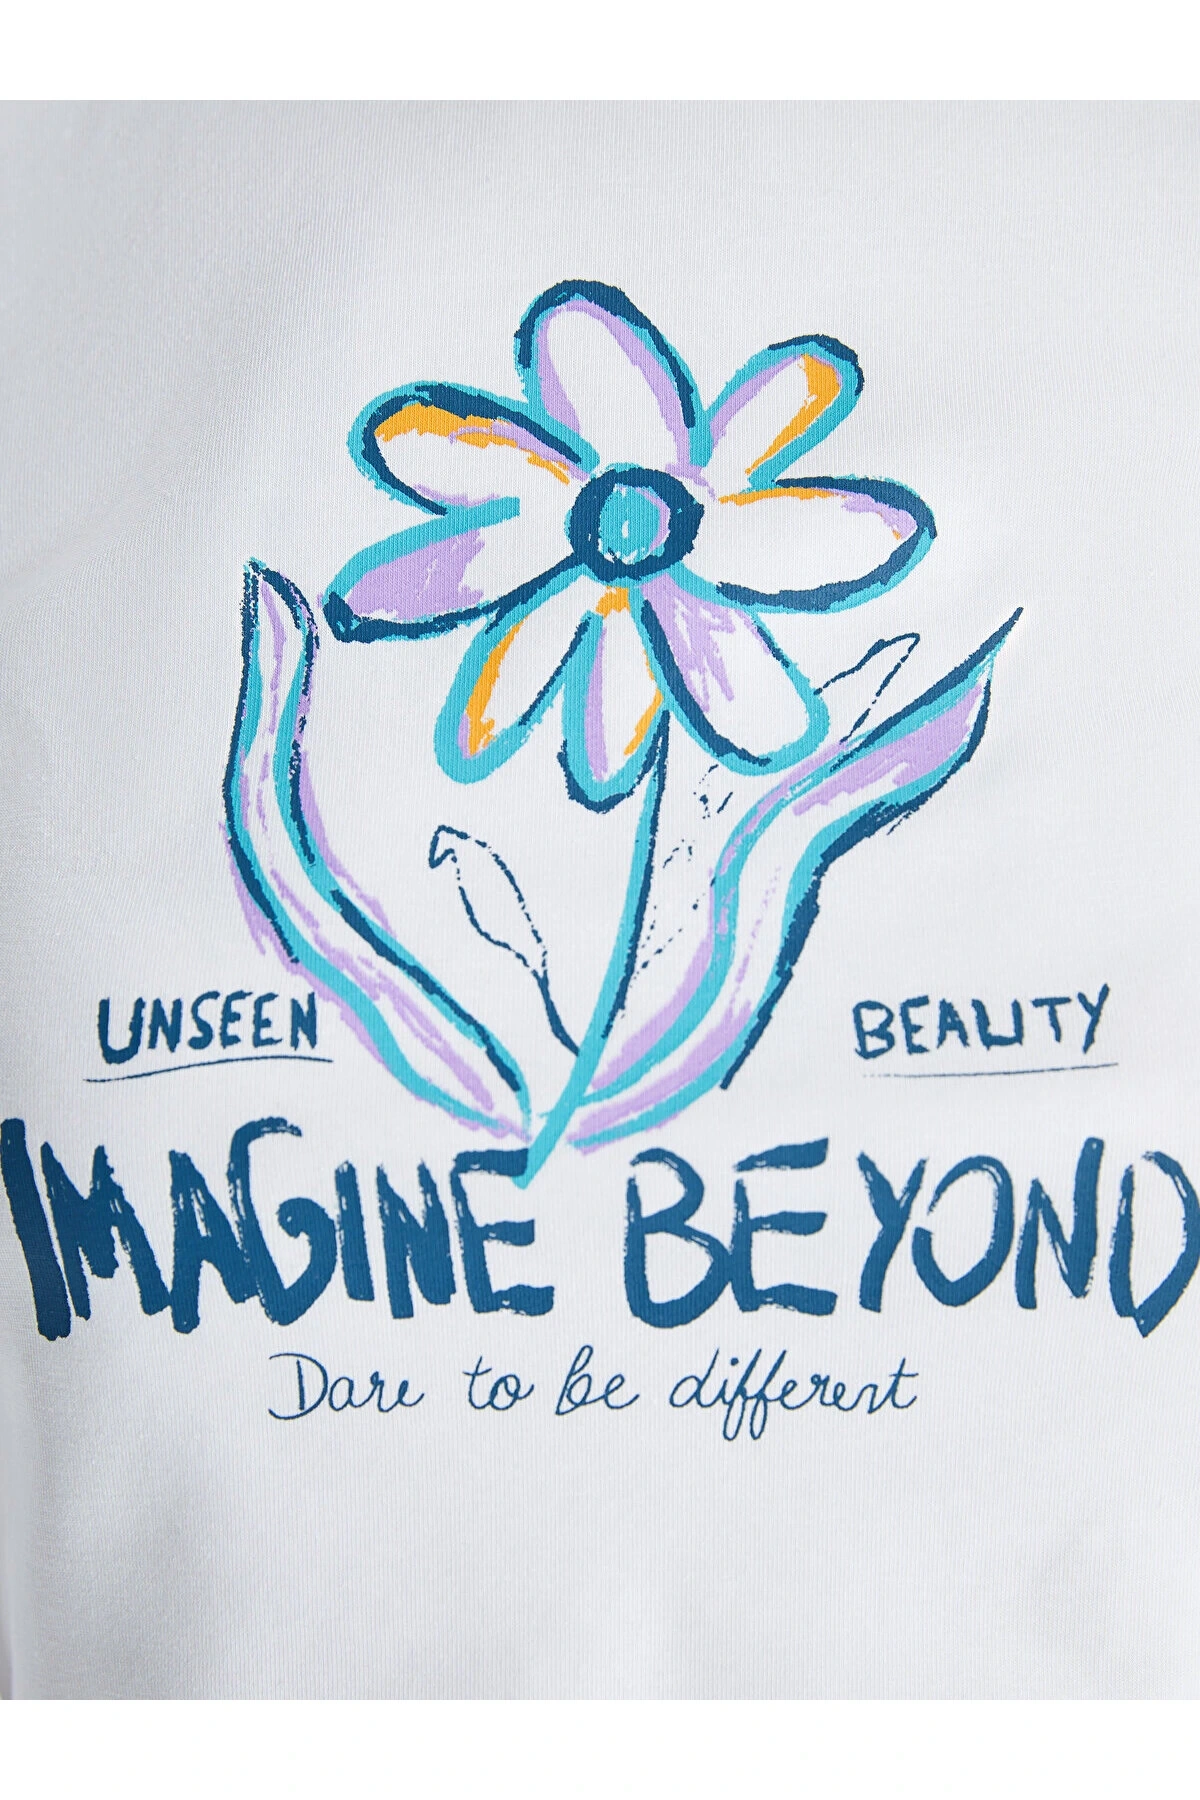 UNSEEN BEAUTY
IMAGINE BEYOND
Dare to be different